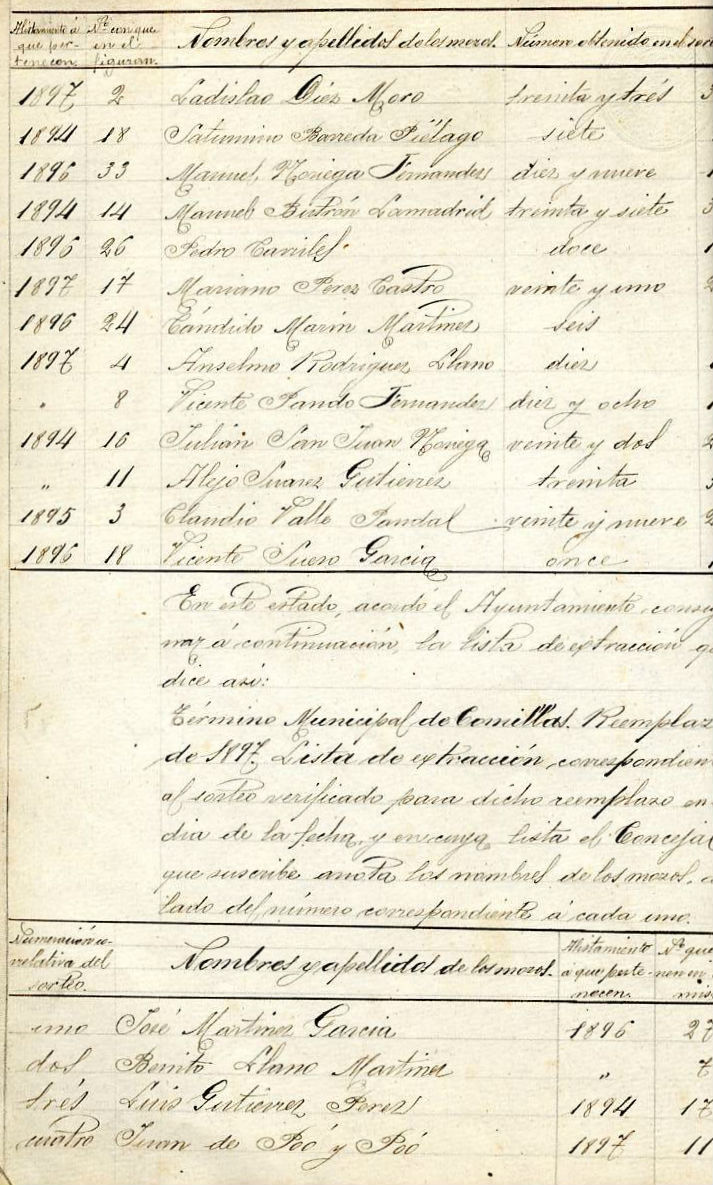 Alistamiento á que per- tenecen. Nº con que en el figuran. Nombres y apellidos de los mozos. Número obtenido en el sor
1897 2 Ladislao Diez Moro treinta y trés 3
1894 18 Saturnino Barreda Piélago siete
1896 33 Manuel Noriega Fernandez diez y nueve 1
1894 14 Manuel Butrón Lamadrid treinta y siete 3
1896 26 Pedro Caviles doce 1
1897 17 Mariano Perez Castro veinte y uno 2
1896 24 Cándido Marin Martinez seis
1897 4 Anselmo Rodriguez Llano diez 1
" 8 Vicente Pando Fernandez diez y ocho 1
1894 16 Julián San Juan Noriega veinte y dos 2
" 11 Alejo Suarez Gutierrez treinta 3
1895 3 Claudio Valle Pandal veinte y nueve 2
1896 18 Vicente Suero Garcia once 1
En este estado, acordó el Ayuntamiento consig
nar á continuación, la lista de extracción q
dice asi:
Término Municipal de Comillas. Reemplaz
de 1897. Lista de extracción correspondien
al sorteo verificado para dicho reemplazo en
dia de la fecha, y en cuya lista el Concejal
que suscribe anota los nombres de los mozos, a
lado del número correspondiente á cada uno.
Numeración co- rrelativa del sorteo. Nombres y apellidos de los mozos. Alistamiento a que perte- necen. Nº que
uno José Martinez Garcia 1896 27
dos Benito Llano Martinez " 7
trés Luis Gutierrez Perez 1894 17
cuatro Juan de Poó y Poó 1897 11